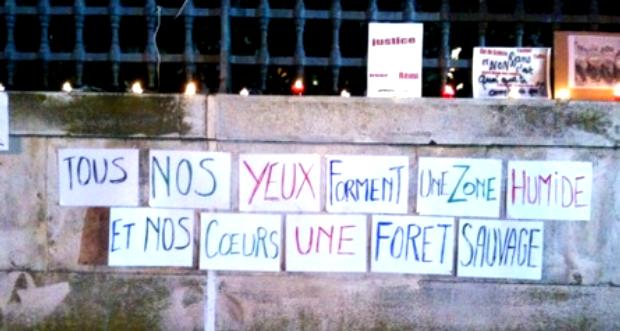 justice
Rémi
TOUS NOS YEUX FORMENT UNE ZONE HUMIDE
ET NOS CŒURS UNE FORET SAUVAGE